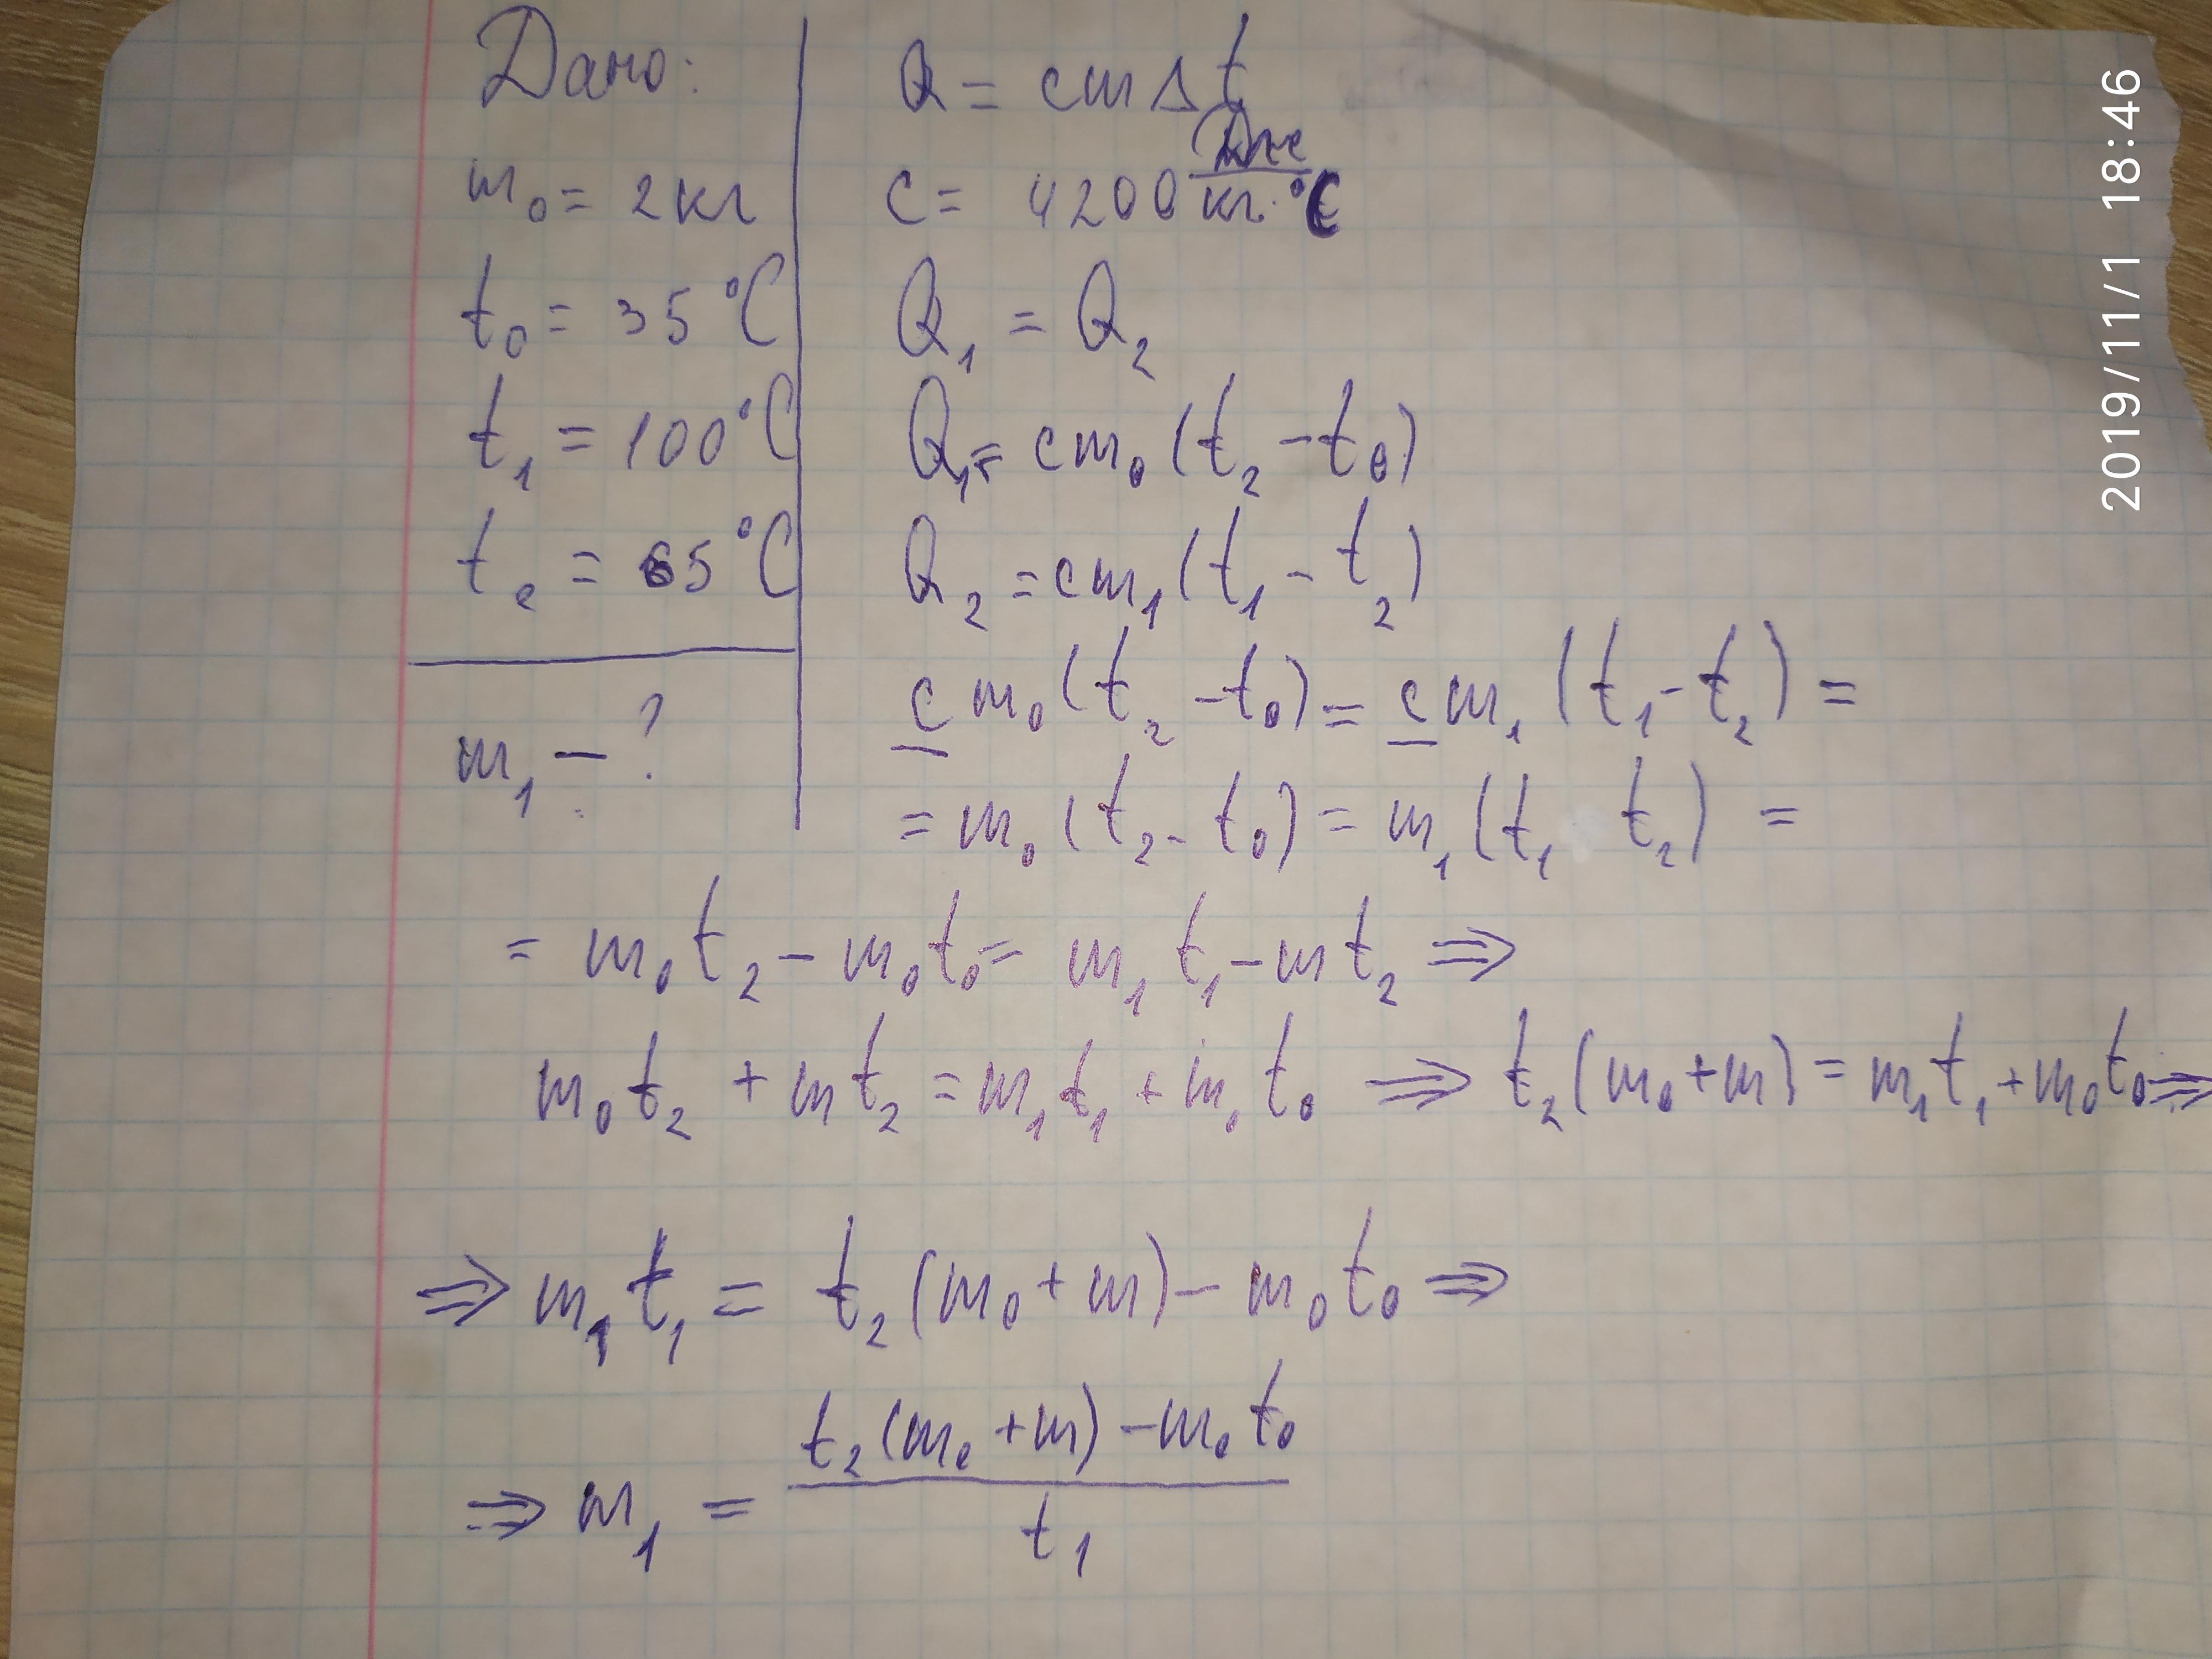 Дано:
m₀ = 2 кг
t₀ = 35 °C
t₁ = 100 °C
t₂ = 65 °C
m₁ – ?
Q = cmΔt
c = 4200 Дж/кг·°C
Q₁ = Q₂
Q₁ = cm₀(t₂ – t₀)
Q₂ = cm₁(t₁ – t₂)
cm₀(t₂ – t₀) = cm₁(t₁ – t₂) =
= m₀(t₂ – t₀) = m₁(t₁ t₂) =
= m₀t₂ – m₀t₀ = m₁t₁ – mt₂ ⇒
m₀t₂ + mt₂ = m₁t₁ + m₀t₀ ⇒ t₂(m₀ + m) = m₁t₁ + m₀t₀ ⇒
⇒ m₁t₁ = t₂(m₀ + m) – m₀t₀ ⇒
⇒ m₁ = t₂(m₀ + m) – m₀t₀ / t₁
2019/11/1 18:46